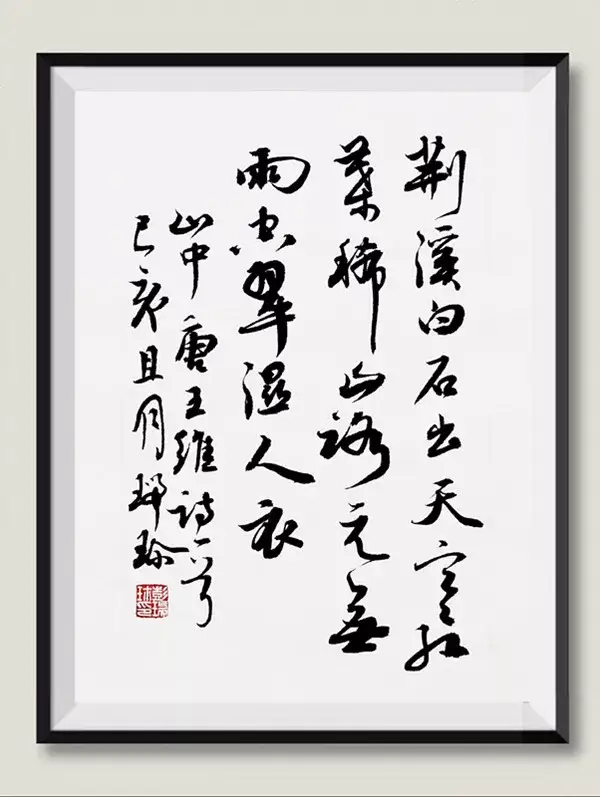 荆溪白石出天寒红
葉稀山路元無
雨空翠湿人衣
山中唐王維詩一首
己亥且月